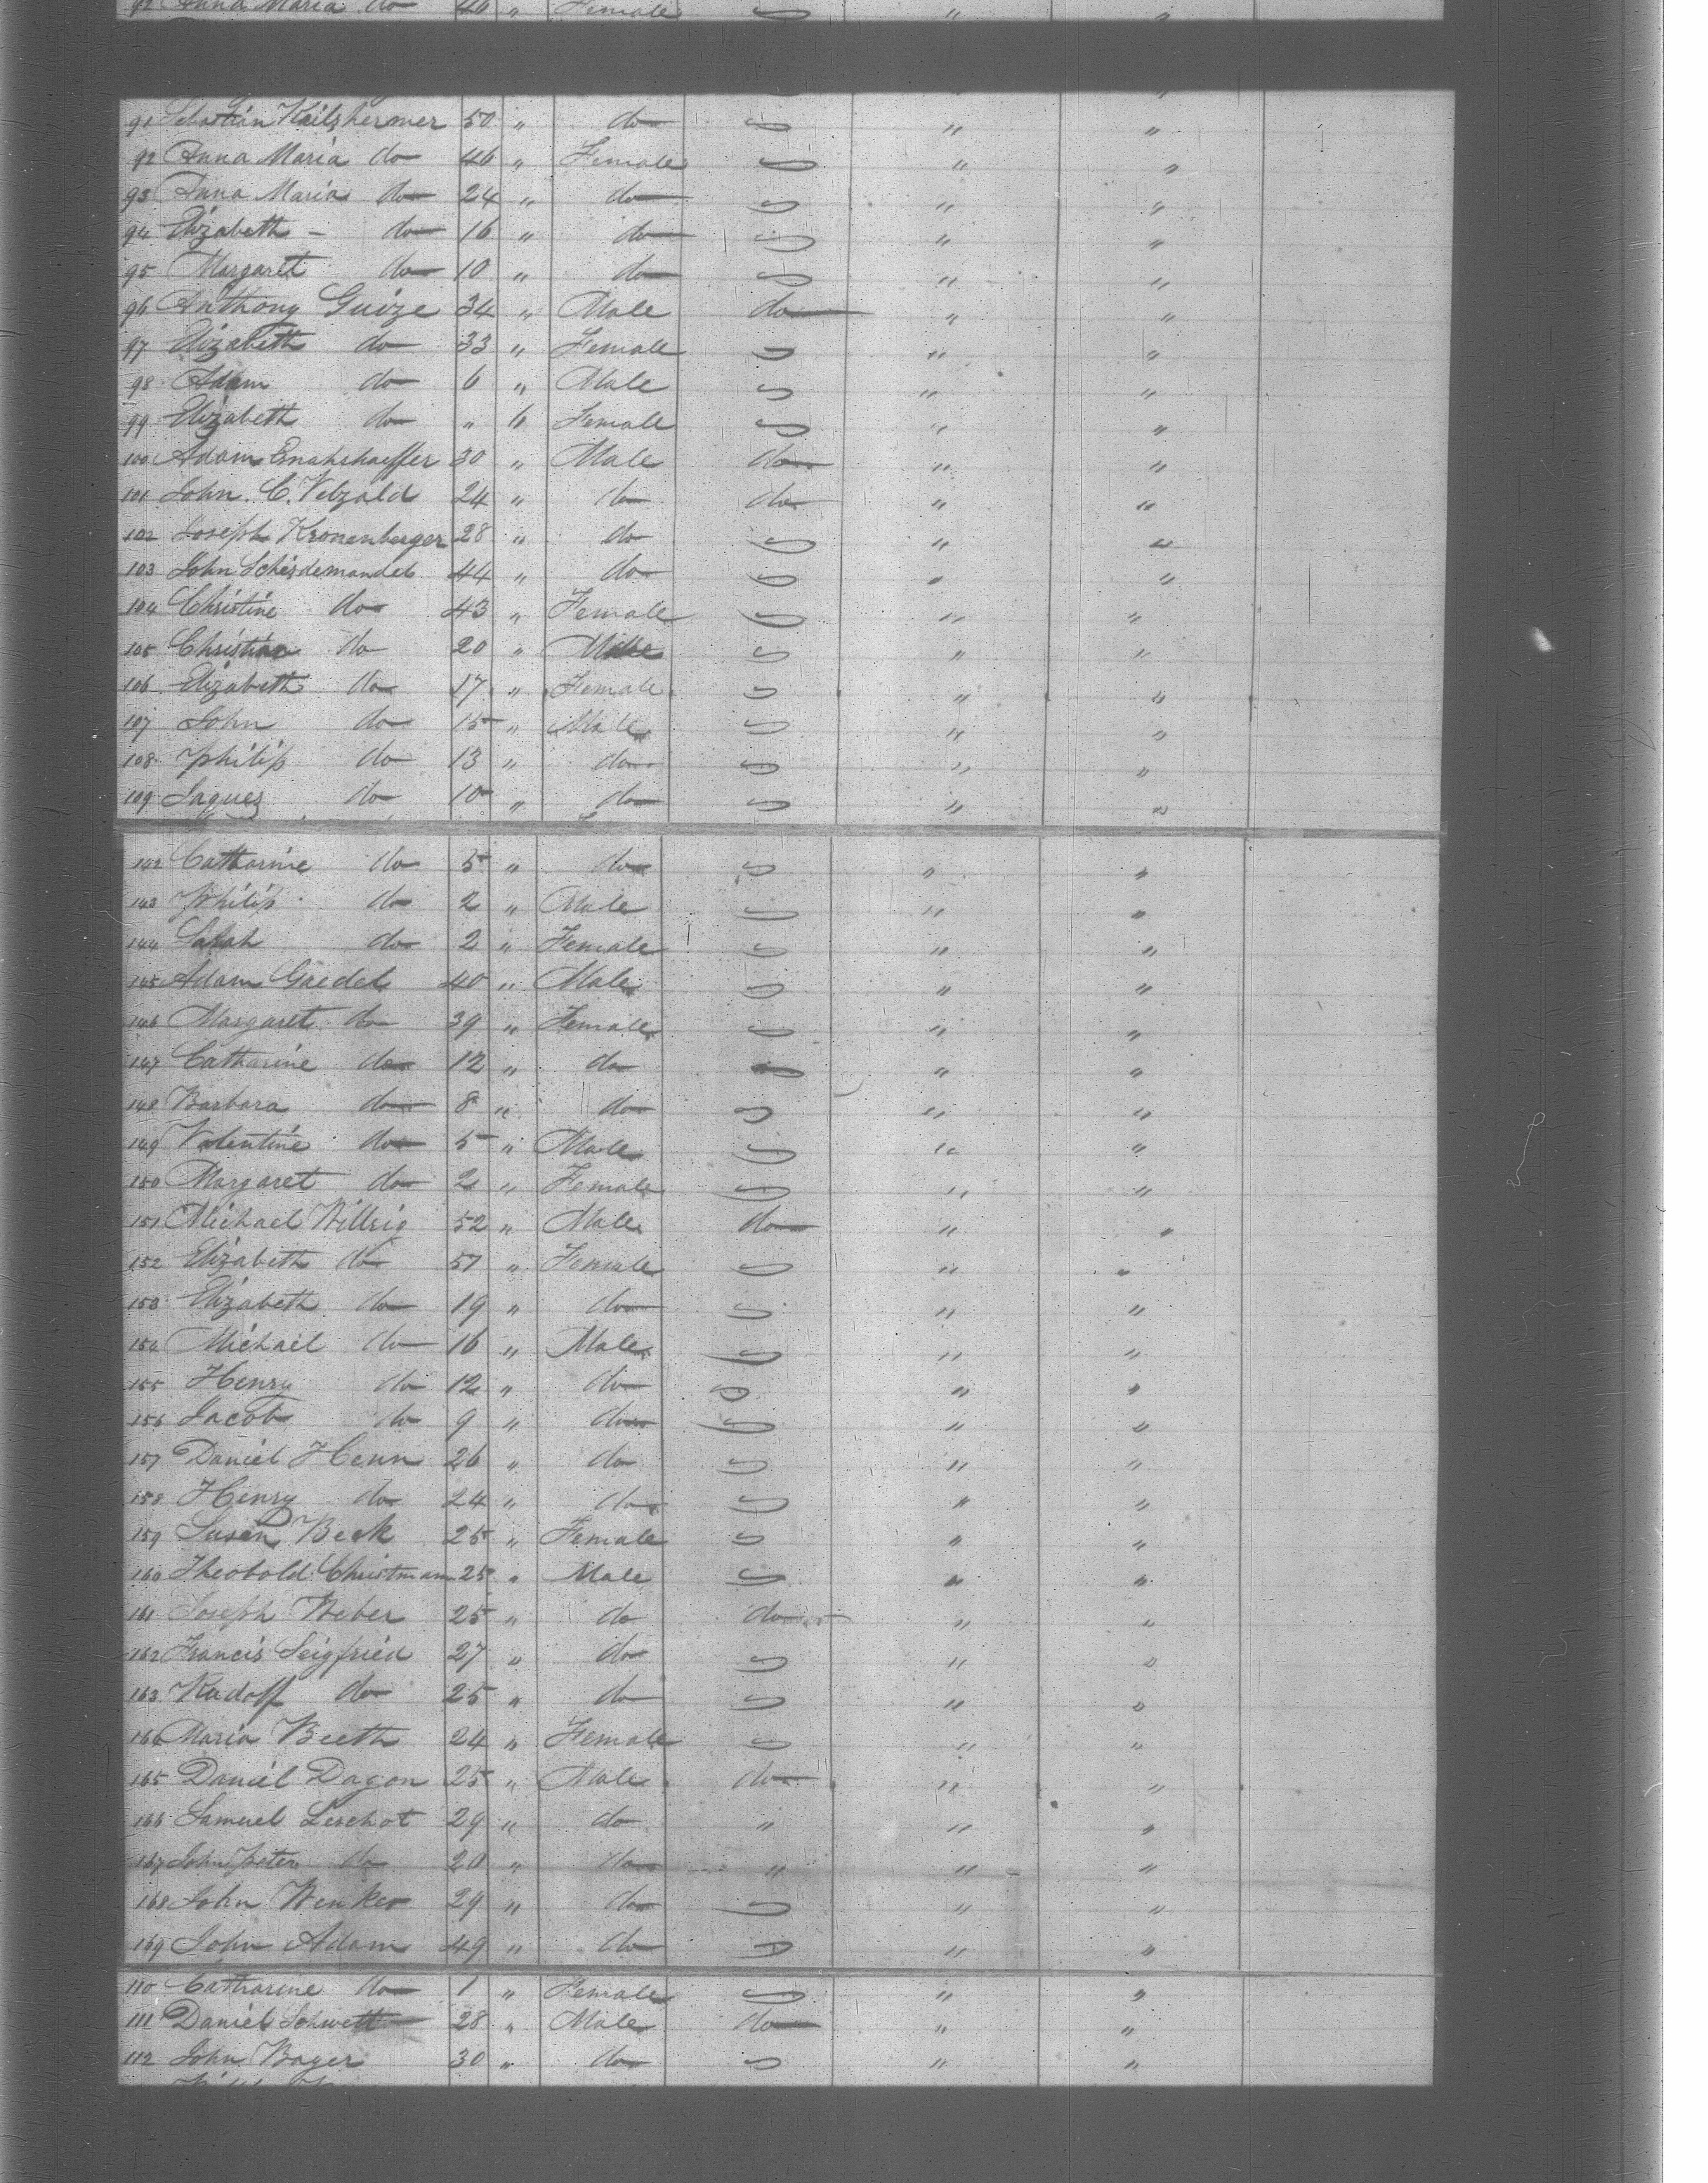 92 Anna Maria do 46 " Female " "
91 Sebastian Heilshermer 50 " do " "
92 Anna Maria do 46 " Female " "
93 Anna Maria do 24 " do " "
94 Elizabeth - do 16 " do " "
95 Margaret do 10 " do " "
96 Anthony Guize 34 " Male do " "
97 Elizabeth do 33 " Female " "
98 Adam do 6 " Male " "
99 Elizabeth do " 6 Female " "
100 Adam 30 " Male do " "
101 John C. Vetzald 24 " do do " "
102 Joseph Kronenberger 28 " do " "
103 John Scheidemandel 44 " do " "
104 Christine do 43 " Female " "
105 Christian do 20 " Male " "
106 Elizabeth do 17 " Female " "
107 John do 15 " Male " "
108 Philip do 13 " do " "
109 Jaques do 10 " do " "
142 Catharine do 5 " do " "
143 Philip do 2 " Male " "
144 Sarah do 2 " Female " "
145 Adam Gaedel 40 " Male " "
146 Margaret do 39 " Female " "
147 Catharine do 12 " do " "
148 Barbara do 8 " do " "
149 Valentine do 5 " Male " "
150 Margaret do 2 " Female " "
151 Michael Billrig 52 " Male do " "
152 Elizabeth do 51 " Female " "
153 Elizabeth do 19 " do " "
154 Michael do 16 " Male " "
155 Henry do 12 " do " "
156 Jacob do 9 " do " "
157 Daniel Henn 26 " do " "
158 Henry do 24 " do " "
159 Susan Beck 25 " Female " "
160 Theobold Christman 25 " Male " "
161 Joseph Weber 25 " do do " "
162 Francis Seigfried 27 " do " "
163 Rudolf do 25 " do " "
164 Maria Beeth 24 " Female " "
165 Daniel Dagon 25 " Male do " "
166 Samuel Leschot 29 " do " " "
167 John Peter do 20 " do " " "
168 John Wenker 29 " do " "
169 John Adam 49 " do " "
110 Catharine do 1 " Female " "
111 Daniel Schwett 28 " Male do " "
112 John Bayer 30 " do " "